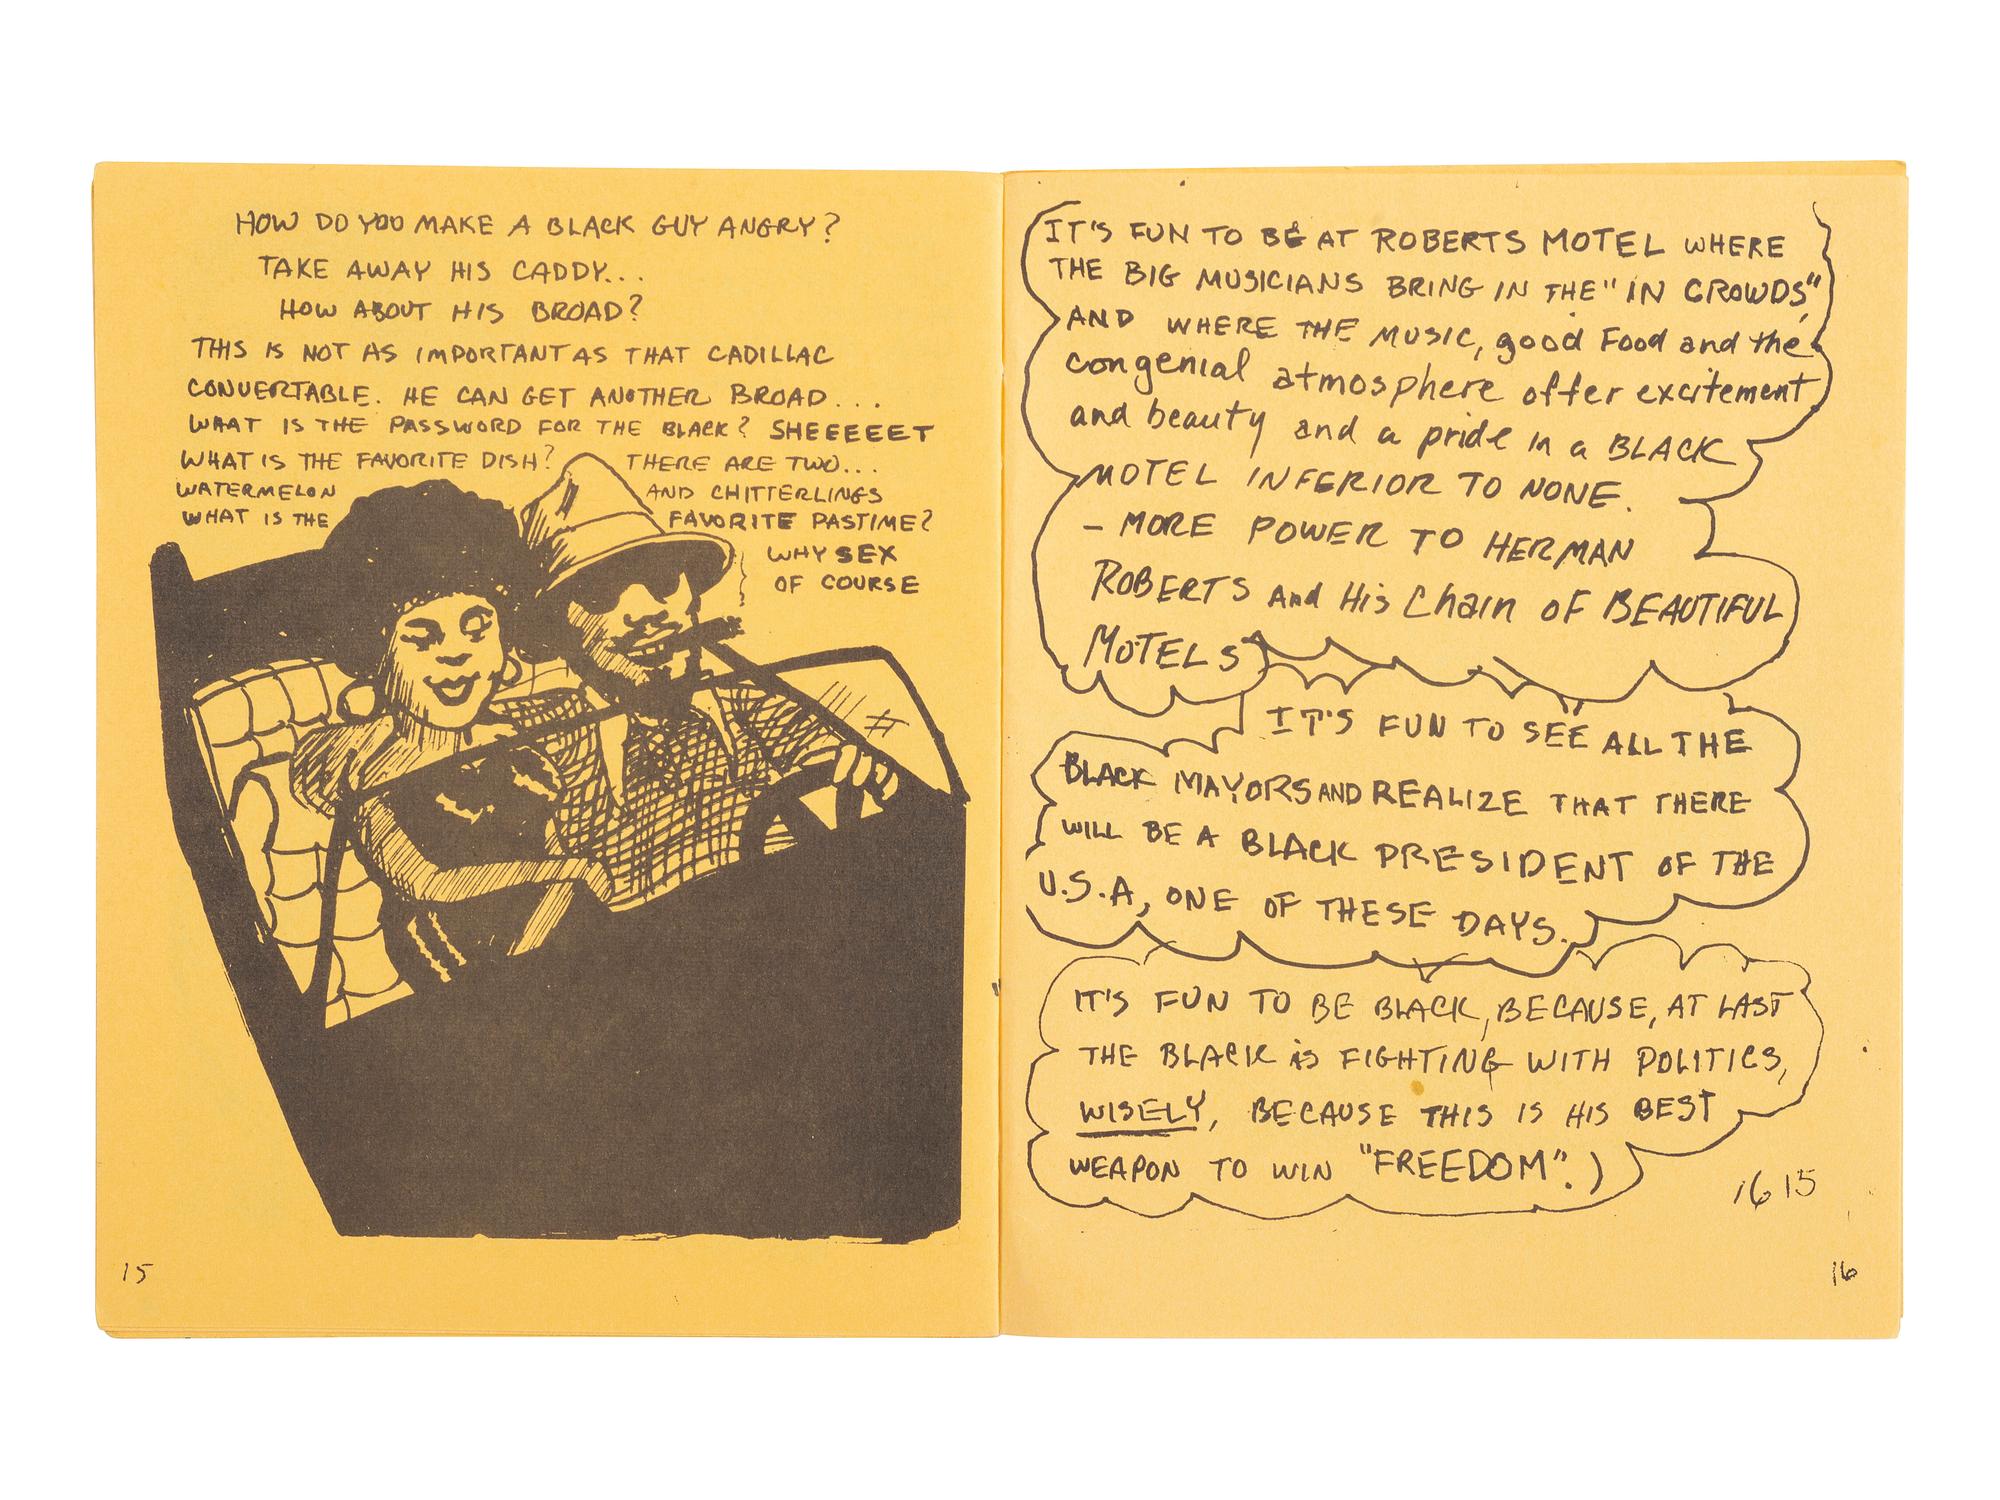 HOW DO YOU MAKE A BLACK GUY ANGRY?
TAKE AWAY HIS CADDY...
HOW ABOUT HIS BROAD?
THIS IS NOT AS IMPORTANT AS THAT CADILLAC
CONVERTABLE. HE CAN GET ANOTHER BROAD...
WHAT IS THE PASSWORD FOR THE BLACK? SHEEEEET
WHAT IS THE FAVORITE DISH? THERE ARE TWO...
WATERMELON AND CHITTERLINGS
WHAT IS THE FAVORITE PASTIME?
WHY SEX
OF COURSE
15
IT'S FUN TO BE AT ROBERTS MOTEL WHERE
THE BIG MUSICIANS BRING IN THE "IN CROWDS,"
AND WHERE THE MUSIC, good Food and the
congenial atmosphere offer excitement
and beauty and a pride in a BLACK
MOTEL INFERIOR TO NONE.
- MORE POWER TO HERMAN
ROBERTS And His Chain OF BEAUTIFUL
MOTELS
IT'S FUN TO SEE ALL THE
BLACK MAYORS AND REALIZE THAT THERE
WILL BE A BLACK PRESIDENT OF THE
U.S.A, ONE OF THESE DAYS.
IT'S FUN TO BE BLACK, BECAUSE, AT LAST
THE BLACK is FIGHTING WITH POLITICS,
WISELY, BECAUSE THIS IS HIS BEST
WEAPON TO WIN "FREEDOM".)
16 15
16